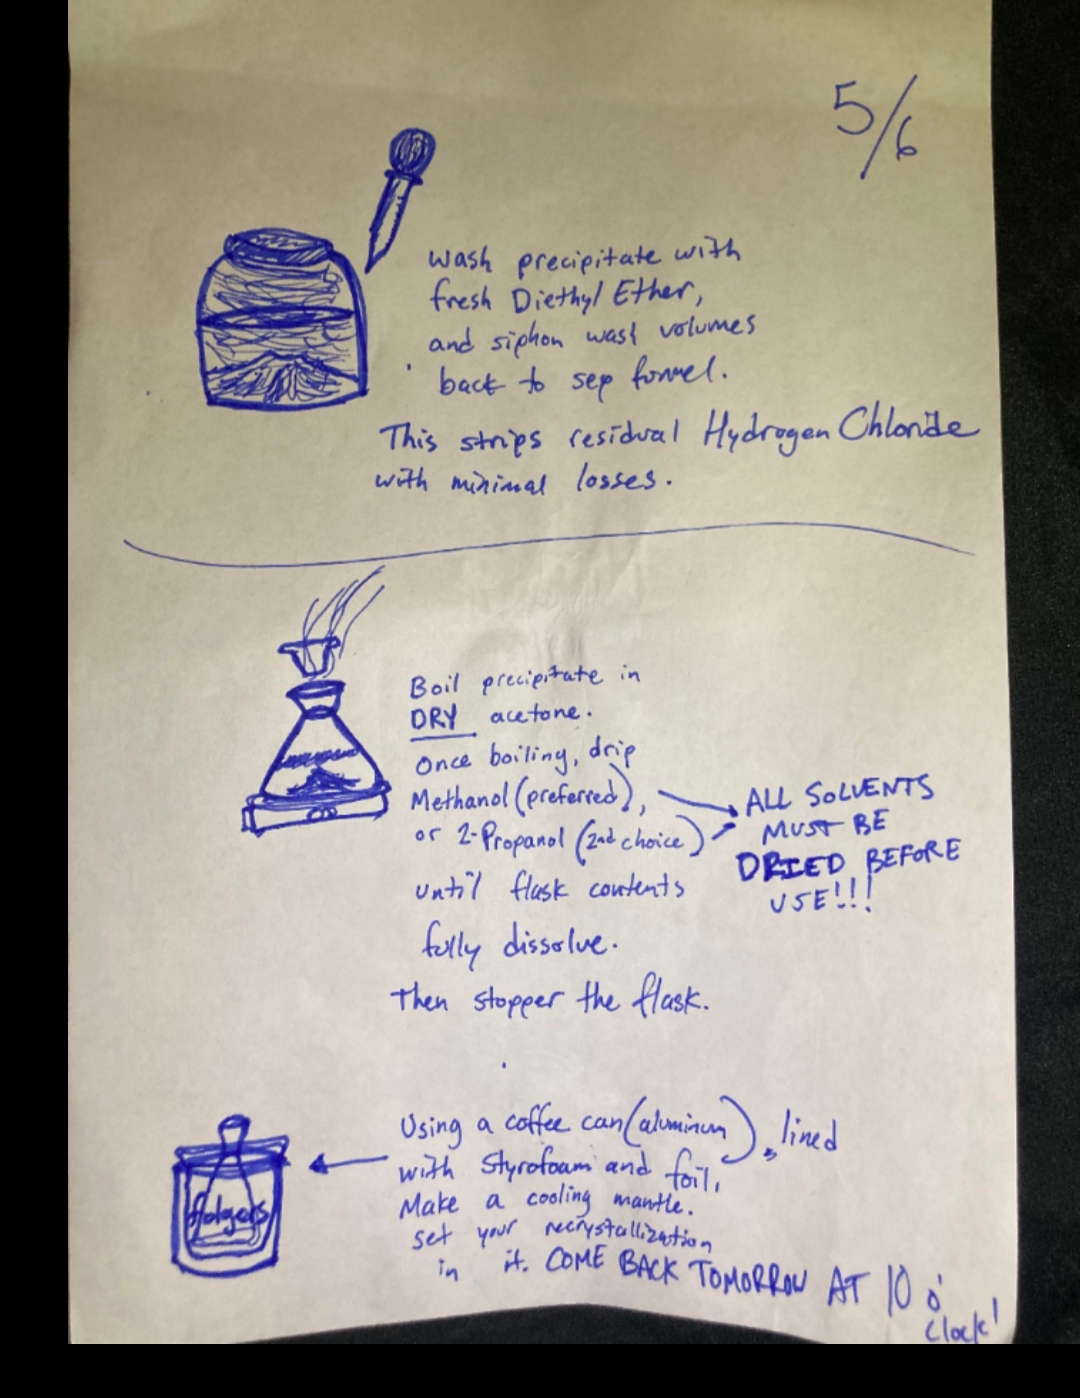 5/6
Wash precipitate with
fresh Diethyl Ether,
and siphon wash volumes
back to sep funnel.
This strips residual Hydrogen Chloride
with minimal losses.
Boil precipitate in
DRY acetone.
Once boiling, drip
Methanol (preferred),
or 2-Propanol (2nd choice)
until flask contents
fully dissolve.
Then stopper the flask.
ALL SOLVENTS
MUST BE
DRIED BEFORE
USE!!!
Using a coffee can (aluminum), lined
with Styrofoam and foil,
Make a cooling mantle.
set your recrystallization
in it. COME BACK TOMORROW AT 10 o'
clock!
folgers